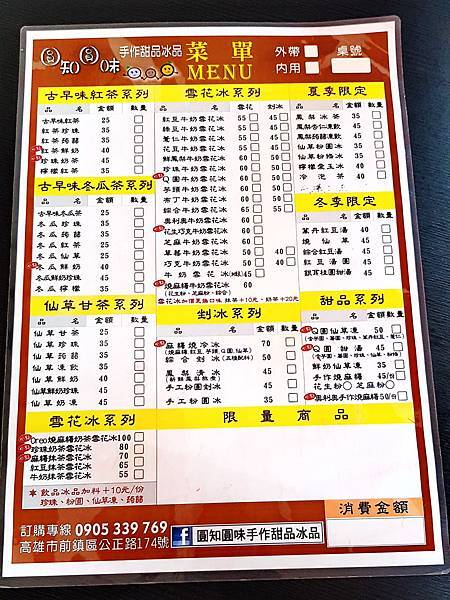 圓知圓味
手作甜品冰品
菜單
MENU
外帶
內用
桌號
古早味紅茶系列
品名 金額 數量
古早味紅茶 25
紅茶珍珠 35
紅茶蒟蒻 35
紅茶鮮奶 40
珍珠奶茶 45
檸檬紅茶 35
古早味冬瓜茶系列
品名 金額 數量
古早味冬瓜茶 25
冬瓜珍珠 35
冬瓜蒟蒻 35
冬瓜紅茶 25
冬瓜仙草 35
冬瓜鮮奶 40
冬瓜鮮奶珍珠 45
冬瓜檸檬 35
仙草甘茶系列
品名 金額 數量
仙草甘茶 25
仙草珍珠 35
仙草蒟蒻 35
仙草凍飲 35
仙草鮮奶 40
仙草鮮奶珍珠 45
仙草奶凍 45
雪花冰系列
品名 金額 數量
Oreo燒麻糬奶茶雪花冰 100
珍珠奶茶雪花冰 80
麻糬抹茶雪花冰 70
紅豆抹茶雪花冰 65
牛奶抹茶雪花冰 55
★飲品冰品加料+10元/份
珍珠、粉圓、仙草凍、蒟蒻
雪花冰系列
品名 雪花 剉冰
紅豆牛奶雪花冰 55 45
綠豆牛奶雪花冰 55 45
薏仁牛奶雪花冰 55 45
花豆牛奶雪花冰 55 45
鮮鳳梨牛奶雪花冰 60 50
珍珠牛奶雪花冰 55 45
Q圓牛奶雪花冰 60 50
芋頭牛奶雪花冰 60 50
布丁牛奶雪花冰 60 50
綜合牛奶雪花冰 65 55
奧利奧牛奶雪花冰 60
花生巧克牛奶雪花冰 60
芝麻牛奶雪花冰 60
草莓牛奶雪花冰 50 40
巧克牛奶雪花冰 50 40
牛奶雪花冰(原味) 45
燒麻糬牛奶雪花冰 60
(花生粉、芝麻粉、綜合)
雪花冰加價更換口味 抹茶+10元、奶茶+20元
剉冰系列
品名 金額 數量
麻糬燒冷冰 70
(燒麻糬.紅豆.芋頭.Q圓.仙草)
綜合剉冰(五種配料) 50
鳳梨清冰 45
(新鮮鳳梨熬煮)
手工粉圓剉冰 35
手工粉圓冰 35
夏季限定
品名 金額 數量
鳳梨冰茶 35
鳳梨杏仁凍飲 40
鳳梨蒟蒻凍飲 40
仙草粉圓冰 35
仙草粉條冰 35
檸檬愛玉冰 40
冷泡茶 35
冬季限定
品名 金額 數量
萬丹紅豆湯 40
燒仙草 45
綜合紅豆湯 45
紅豆湯圓 45
銀耳桂圓甜湯 45
甜品系列
品名 金額 數量
Q圓仙草凍 50
Q圓甜湯 45
鮮奶仙草凍 35
手作燒麻糬 45/份
花生粉 芝麻粉
奧利奧手作燒麻糬 50/份
限量商品
消費金額
訂購專線 0905 339 769
高雄市前鎮區公正路174號
f 圓知圓味手作甜品冰品